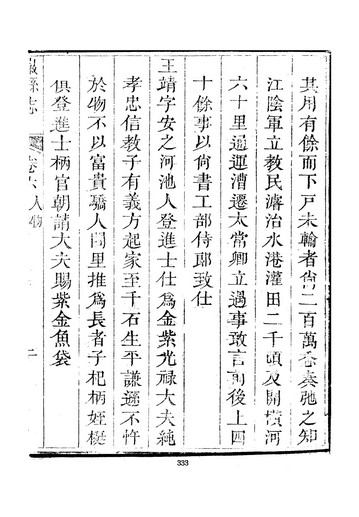 其用有餘而下戸未輸者尙二百萬悉奏弛之知
江陰軍立教民濬治水港灌田二千頃及開橫河
六十里通運漕遷太常卿立遇事敢言前後上四
十餘事以尙書工部侍郎致仕
王靖字安之河池人登進士仕爲金紫光禄大夫純
孝忠信教子有義方起家至千石生平謙遜不忤
於物不以富貴驕人閭里推爲長者子杞柄姪梃
俱登進士柄官朝請大夫賜紫金魚袋
縣志
卷六 人物
二
333